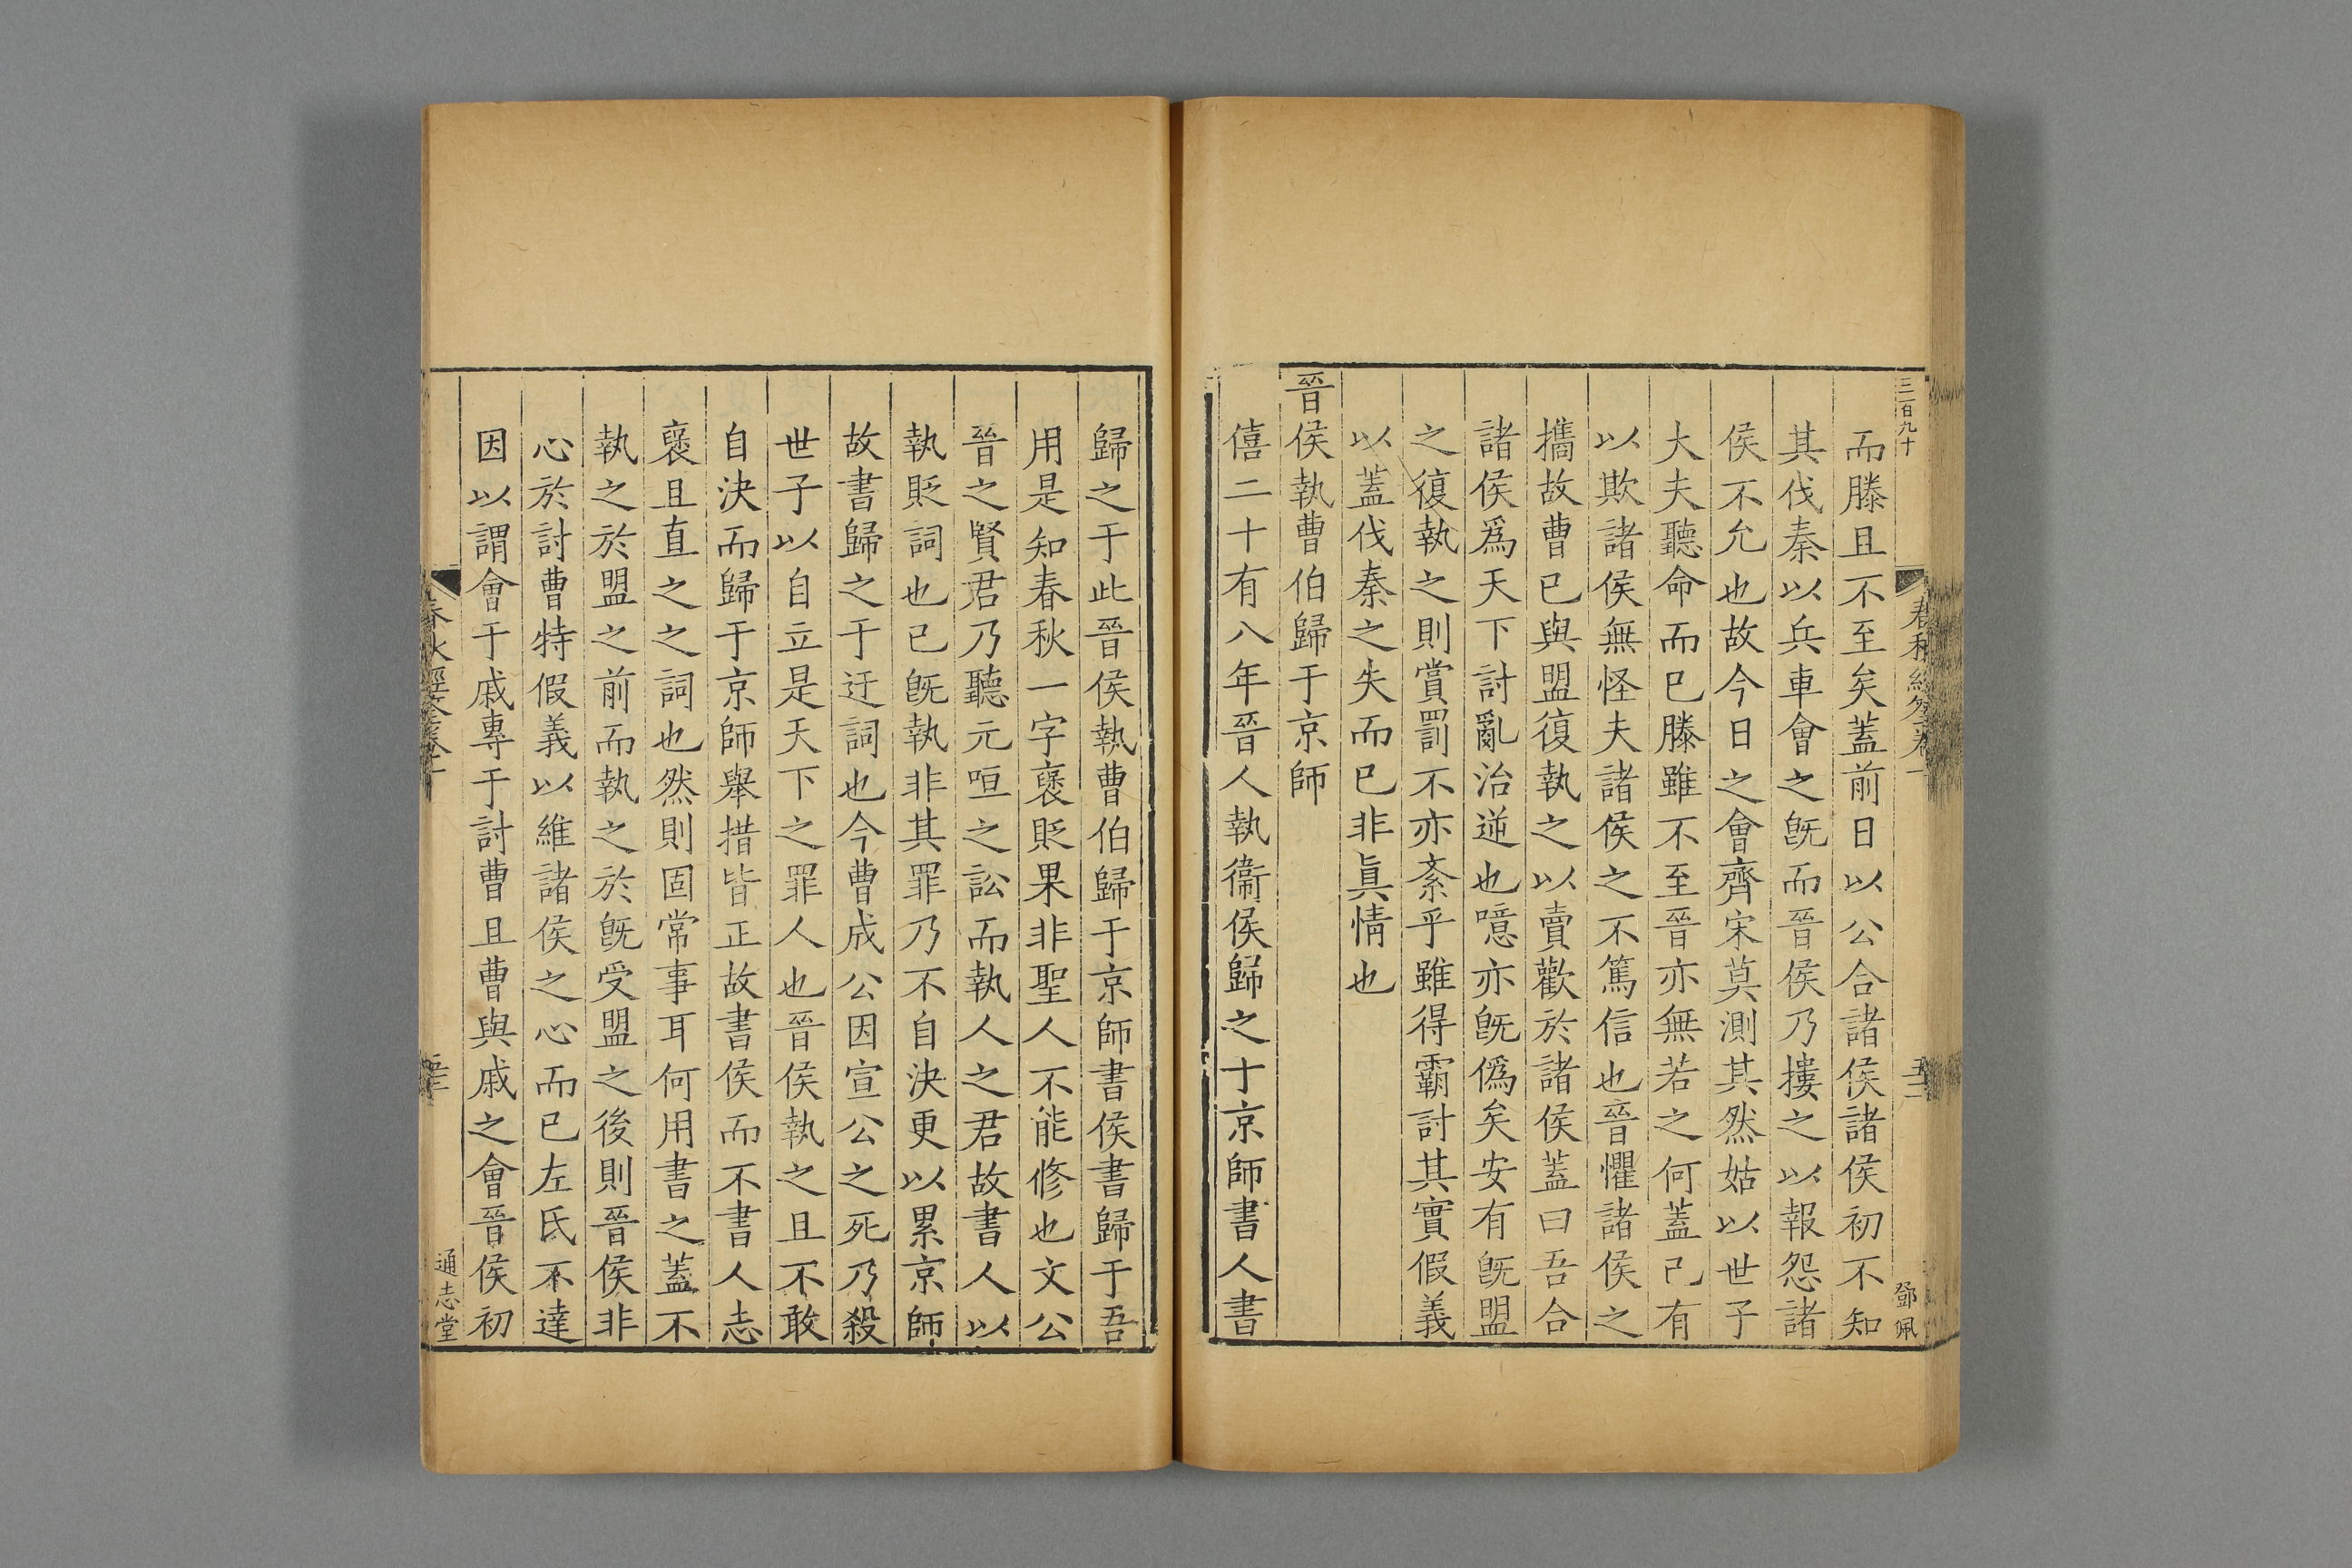 三百九十
而滕且不至矣蓋前日以公合諸侯諸侯初不知
其伐秦以兵車會之旣而晉侯乃摟之以報怨諸
侯不允也故今日之會齊宋莫測其然姑以世子
大夫聽命而已滕雖不至晉亦無若之何蓋己有
以欺諸侯無怪夫諸侯之不篤信也晉懼諸侯之
攜故曹已與盟復執之以賣歡於諸侯蓋曰吾合
諸侯爲天下討亂治逆也噫亦旣僞矣安有旣盟
之復執之則賞罰不亦紊乎雖得霸討其實假義
以蓋伐秦之失而已非眞情也
晉侯執曹伯歸于京師
僖二十有八年晉人執衞侯歸之于京師書人書
歸之于此晉侯執曹伯歸于京師書侯書歸于吾
用是知春秋一字襃貶果非聖人不能修也文公
晉之賢君乃聽元咺之訟而執人之君故書人以
執貶詞也已旣執非其罪乃不自決更以累京師
故書歸之于迂詞也今曹成公因宣公之死乃殺
世子以自立是天下之罪人也晉侯執之且不敢
自決而歸于京師舉措皆正故書侯而不書人志
襃且直之之詞也然則固常事耳何用書之蓋不
執之於盟之前而執之於旣受盟之後則晉侯非
心於討曹特假義以維諸侯之心而已左氏不達
因以謂會于戚專于討曹且曹與戚之會晉侯初
通志堂